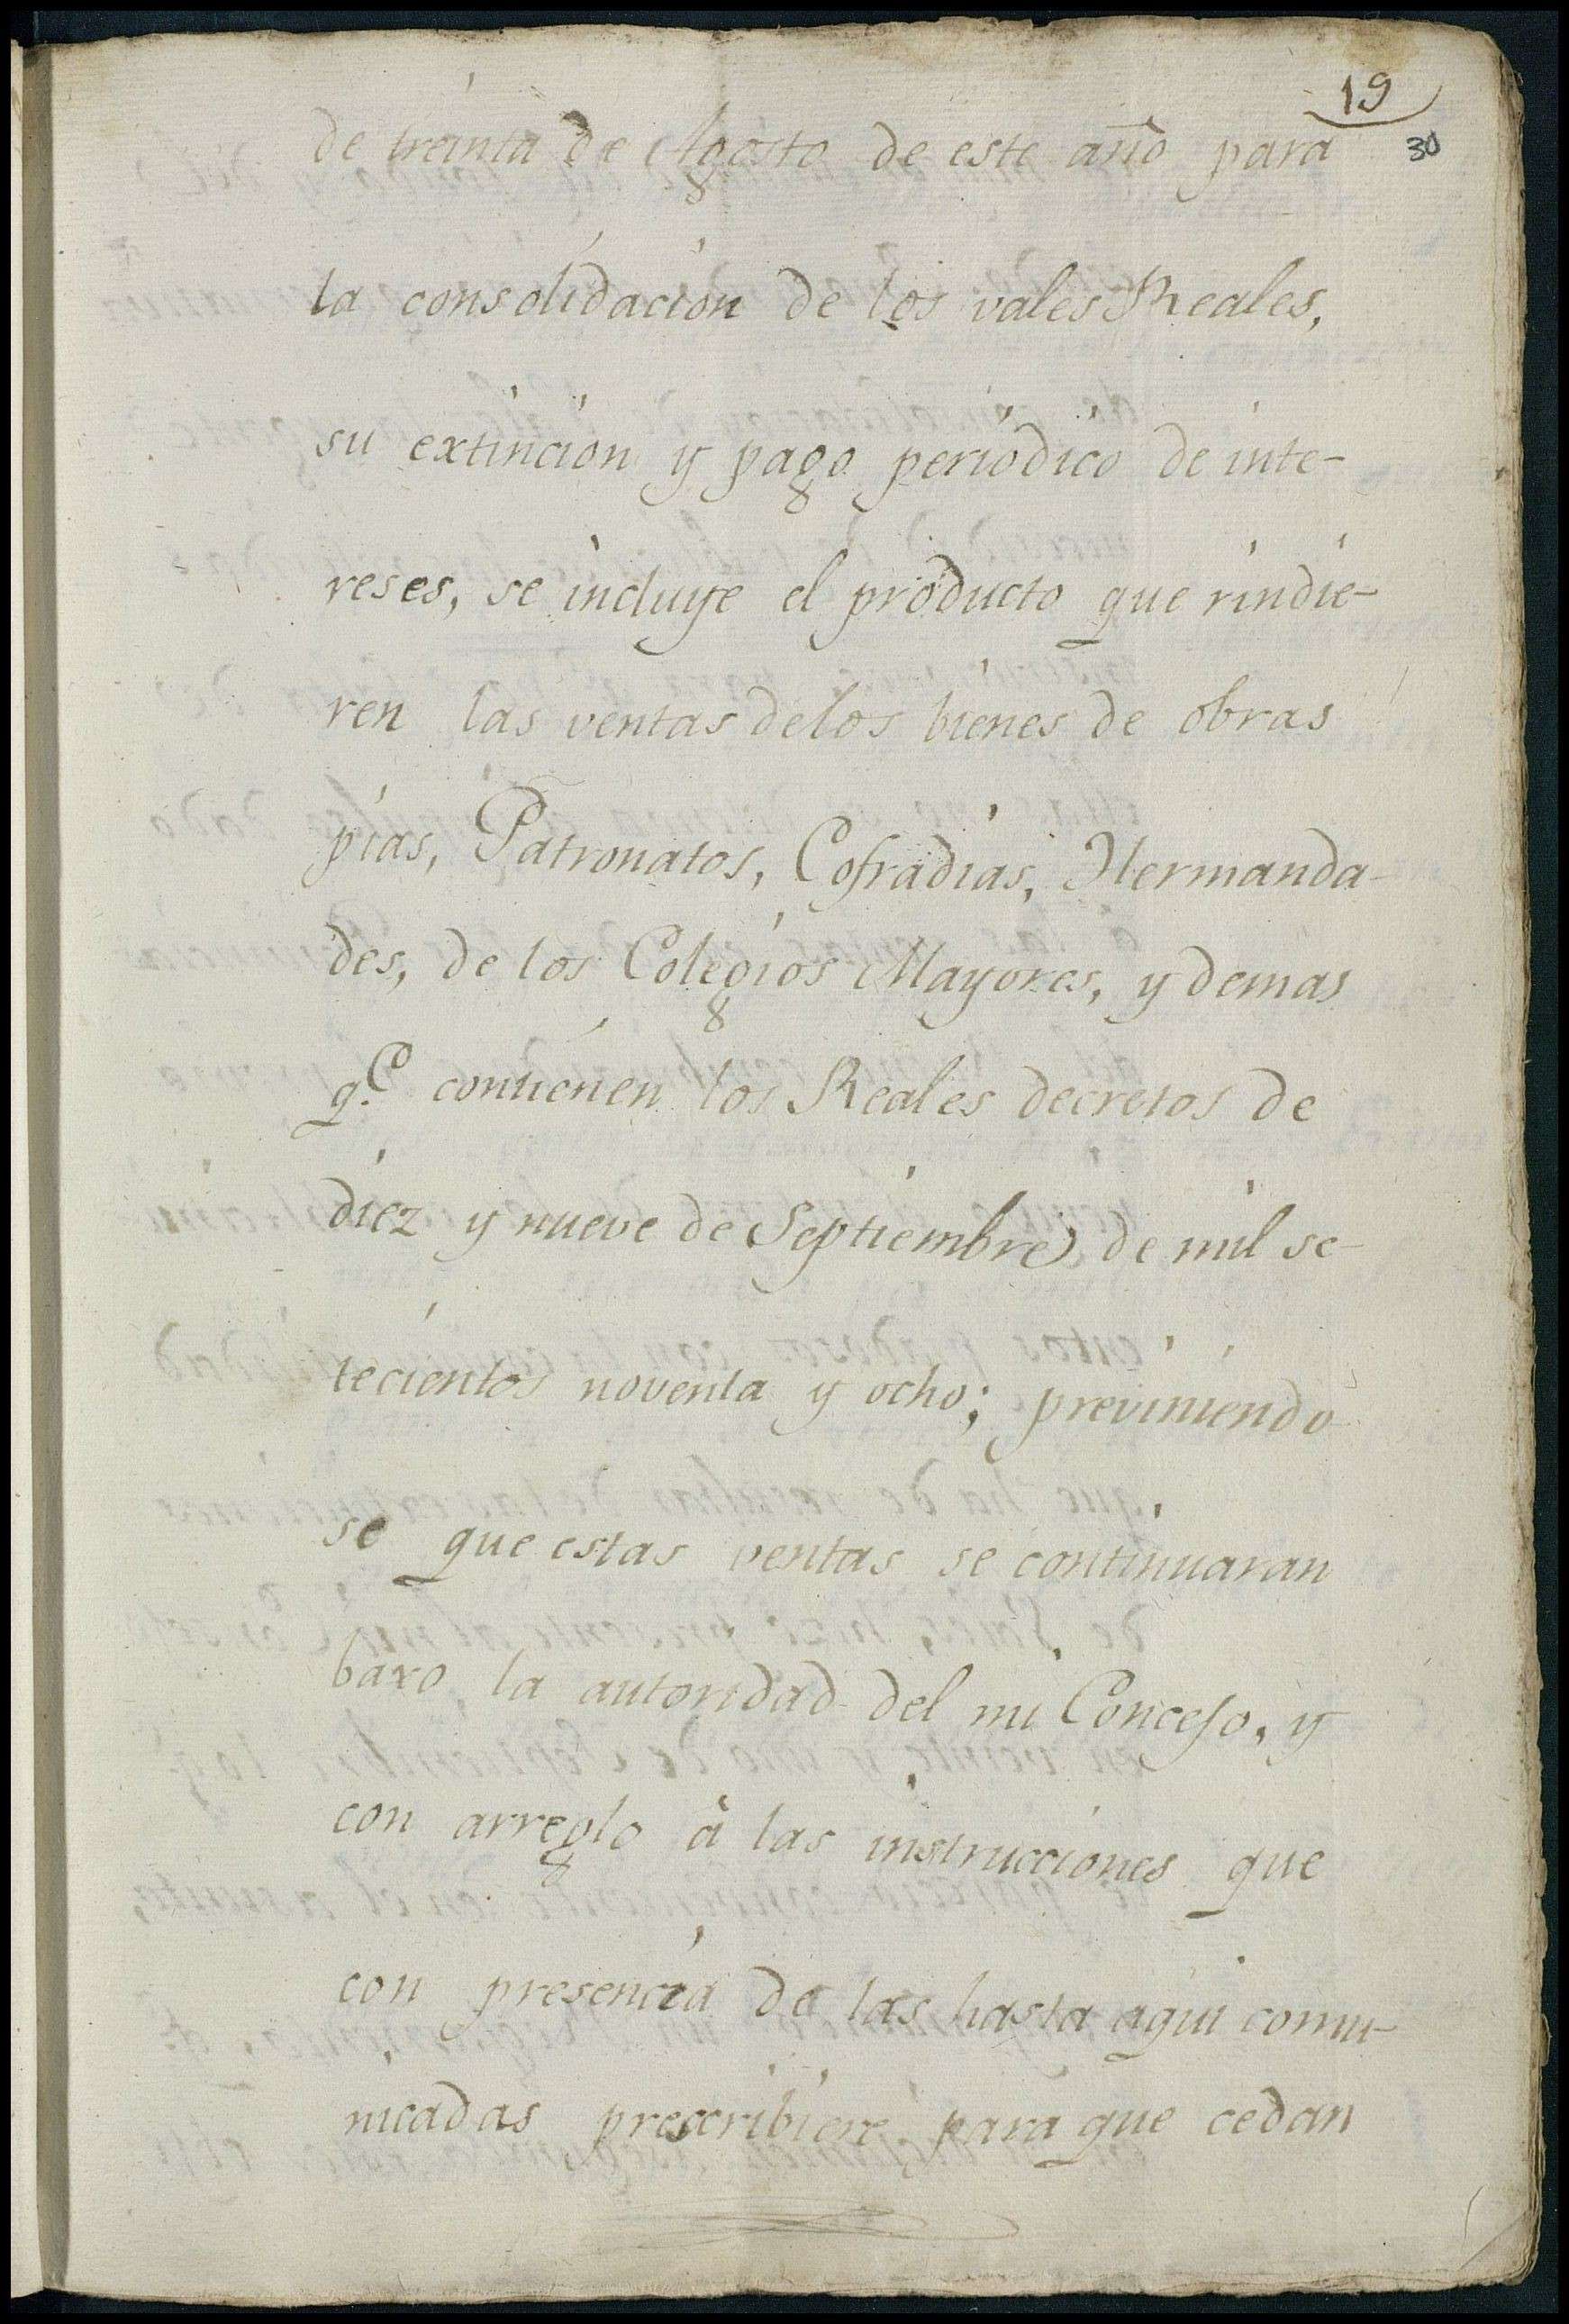 19
30
de treinta de Agosto de este año para
la consolidacion de los vales Reales,
su extincion y pago periódico de inte-
reses, se incluye el producto que rindie-
ren las ventas delos bienes de obras
pias, Patronatos, Cofradias, Hermanda-
des, de los Colegios Mayores, y demas
q.e contienen los Reales decretos de
diez y nueve de Septiembre de mil se-
tecientos noventa y ocho; previniendo
se que estas ventas se continuaran
baxo la autoridad del mi Concejo, y
con arreglo à las instrucciones que
con presencia de las hasta aqui comu-
nicadas prescribiere para que cedan